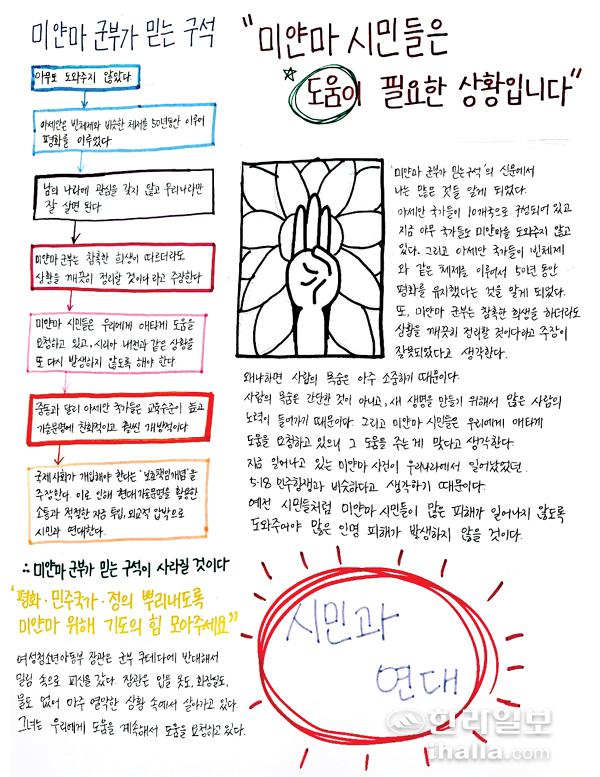 미얀마 군부가 믿는 구석
아무도 도와주지 않았다
아세안은 빈체제와 비슷한 체제를 50년동안 이루어
평화를 이루었다
남의 나라에 관심을 갖지 않고 우리나라만
잘 살면 된다
미얀마 군부는 참혹한 희생이 따르더라도
상황을 깨끗히 정리할 것이다 라고 주장한다
미얀마 시민들은 우리에게 애타게 도움을
요청하고 있고, 시리아 내전과 같은 상황을
또 다시 발생하지 않도록 해야 한다
중동과 달리 아세안 국가들은 교육수준이 높고
가슴문명에 친화적이고 훨씬 개방적이다
국제사회가 개입해야 한다는 '보호책임개념'을
주장한다. 이로 인해 현대가슴문명을 활용한
소통과 적정한 자금 투입, 외교적 압박으로
시민과 연대한다.
∴ 미얀마 군부가 믿는 구석이 사라질 것이다
'평화·민주국가·정의 뿌리내도록
미얀마 위해 기도의 힘 모아주세요"
여성청소년아동부 장관은 군부 쿠데타에 반대해서
밀림 속으로 피신을 갔다. 장관은 입을 옷도, 화장실도,
물도 없어 아주 열악한 상황 속에서 살아가고 있다.
그녀는 우리에게 도움을 계속해서 도움을 요청하고 있다.
"미얀마 시민들은
도움이 필요한 상황입니다"
'미얀마 군부가 믿는구석'의 신문에서
나는 많은 것들 알게 되었다.
아세안 국가들이 10개국으로 구성되어 있고
지금 아무 국가들도 미얀마를 도와주지 않고
있다. 그리고 아세안 국가들이 빈체제
와 같은 체제를 이루어서 50년 동안
평화를 유지했다는 것을 알게 되었다.
또, 미얀마 군부는 참혹한 희생을 하더라도
상황을 깨끗히 정리할 것이다라고 주장이
잘못되었다고 생각한다.
왜냐하면 사람의 목숨은 아주 소중하기 때문이다.
사람의 목숨은 간단한 것이 아니고, 새 생명을 만들기 위해서 많은 사람의
노력이 들어가기 때문이다. 그리고 미얀마 시민들은 우리에게 애타게
도움을 요청하고 있으니 그 도움을 주는게 맞다고 생각한다.
지금 일어나고 있는 미얀마 사건이 우리나라에서 일어났었던
5·18 민주항쟁과 비슷하다고 생각하기 때문이다.
예전 시민들처럼 미얀마 시민들이 많은 피해가 일어나지 않도록
도와주어야 많은 인명 피해가 발생하지 않을 것이다.
시민과
연대
한라일보
ihalla.com